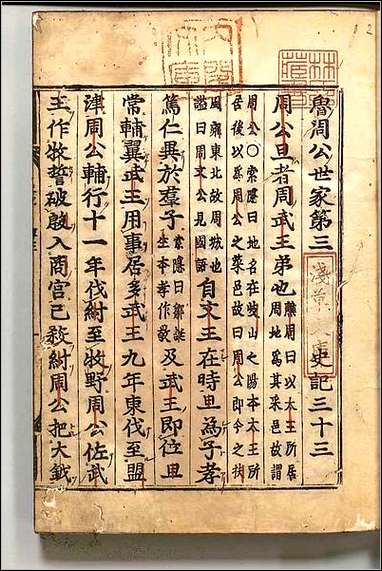 魯周公世家第三 史記三十三
周公旦者周武王弟也 譙周曰以太王所居
周地爲其采邑故謂
周公〇索隱曰地名在岐山之陽本太王所
居後以爲周公之菜邑故曰周公即今之扶
風雍東北故周城也
謚曰周文公見國語 自文王在時旦爲子孝
篤仁異於羣子 索隱曰鄒誕
生本孝作敬 及武王即位旦
常輔翼武王用事居多武王九年東伐至盟
津周公輔行十一年伐紂至牧野周公佐武
王作牧誓破殷入商宮已殺紂周公把大鉞
林氏藏書
淺草文庫